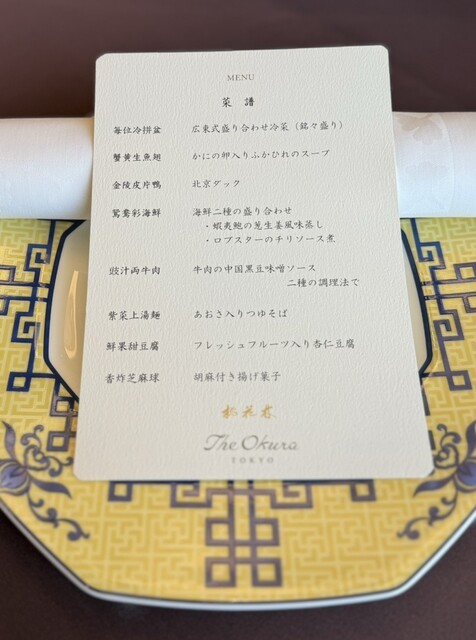 MENU
菜 譜
毎位冷拼盆 広東式盛り合わせ冷菜（銘々盛り）
蟹黄生魚翅 かにの卵入りふかひれのスープ
金陵皮片鴨 北京ダック
鴛鴦彩海鮮 海鮮二種の盛り合わせ
・蝦夷鮑の葱生姜風味蒸し
・ロブスターのチリソース煮
豉汁両牛肉 牛肉の中国黒豆味噌ソース
二種の調理法で
紫菜上湯麺 あおさ入りつゆそば
鮮果甜豆腐 フレッシュフルーツ入り杏仁豆腐
香炸芝麻球 胡麻付き揚げ菓子
桃花林
The Okura
TOKYO